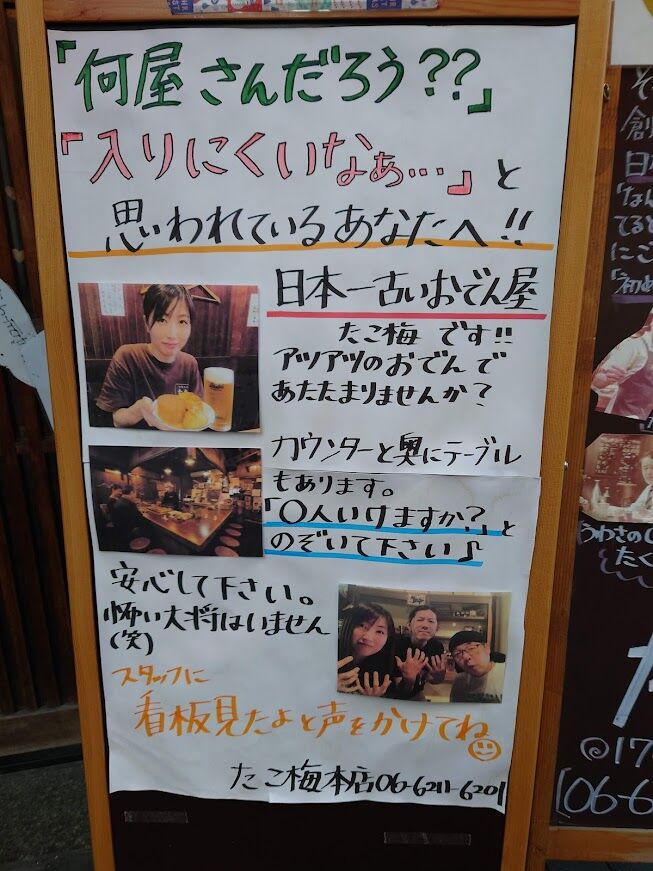 「何屋さんだろう??」
「入りにくいなぁ…」と
思われているあなたへ!!
日本一古いおでん屋
たこ梅 です!!
アツアツのおでんで
あたたまりませんか?
カウンターと奥にテーブル
もあります。
「〇人いけますか?」と
のぞいて下さい♪
安心して下さい。
怖い大将はいません
(笑)
スタッフに
看板見たよと声をかけてね
たこ梅本店06-6211-6201
そ
創
日本
「なん
てると
にご
「初め
うわさの
たく
た
◎17
06-6